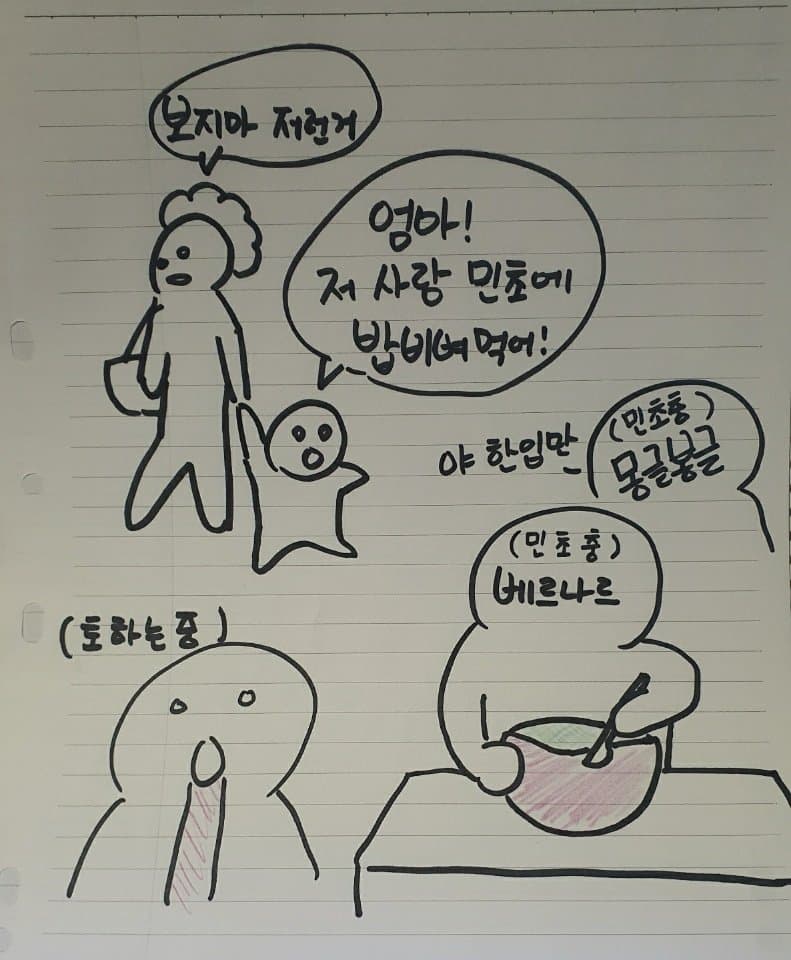 보지마 저런거
엄마!
저 사람 민초에
밥비벼먹어!
야 한입만
(민초충)
몽글봉글
(민초충)
베르나르
(토하는중)